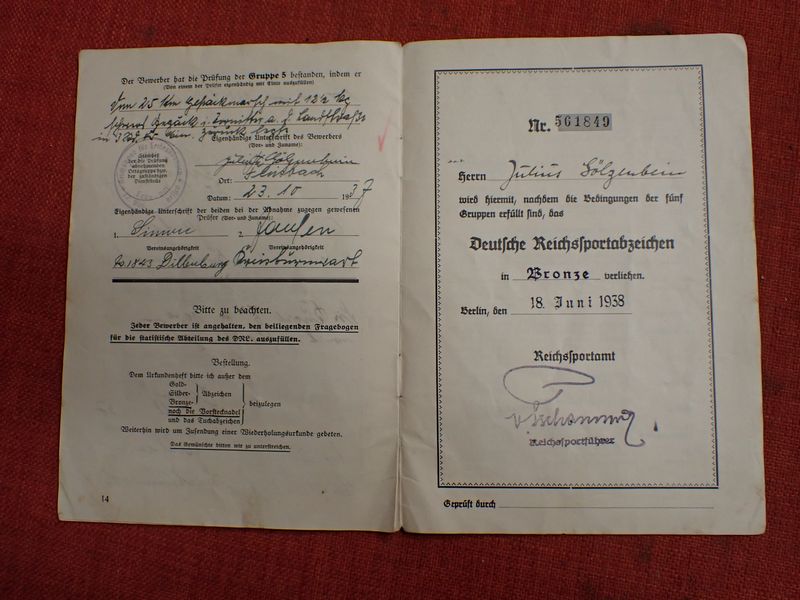 Der Bewerber hat die Prüfung der Gruppe 5 bestanden, indem er
(Von einem der Prüfer eigenhändig mit Tinte auszufüllen)
25 km Gepäckmarsch mit 12½ kg
Eigenhändige Unterschrift des Bewerbers
(Vor- und Zuname):
Julius Sölzenbein
Ort:
Datum: 23.10 1937
Eigenhändige Unterschrift der beiden bei der Abnahme zugegen gewesenen
Prüfer (Vor- und Zuname):
1. 2.
Vereinsangehörigkeit Vereinsangehörigkeit
1843 Dillenburg
Bitte zu beachten.
Jeder Bewerber ist angehalten, den beiliegenden Fragebogen
für die statistische Abteilung des DRL. auszufüllen.
Bestellung.
Dem Urkundenheft bitte ich außer dem
Gold-
Silber- Abzeichen
Bronze-
noch die Vorstecknadel
und das Tuchabzeichen
beizulegen
Weiterhin wird um Zusendung einer Wiederholungsurkunde gebeten.
Das Gewünschte bitten wir zu unterstreichen.
14
Nr. 561849
Herrn Julius Sölzenbein
wird hiermit, nachdem die Bedingungen der fünf
Gruppen erfüllt sind, das
Deutsche Reichssportabzeichen
in Bronze verliehen.
Berlin, den 18. Juni 1938
Reichssportamt
v. Tschammer
Reichssportführer
Geprüft durch